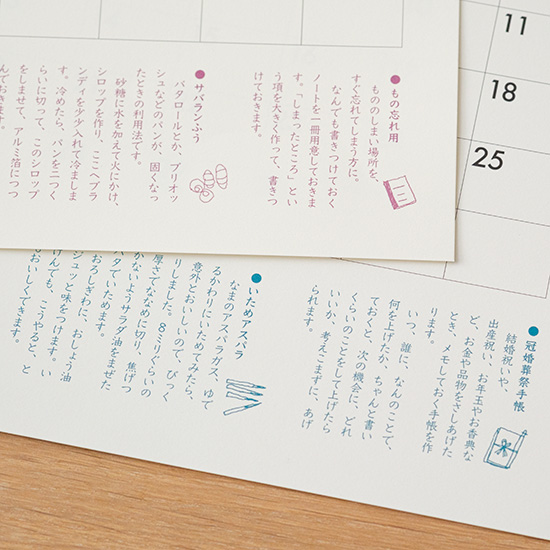 11
18
25
●もの忘れ用
もののしまい場所を、
すぐ忘れてしまう方に。
なんでも書きつけておく
ノートを一冊用意しておきま
す。「しまったところ」とい
う項を大きく作って、書きつ
けておきます。
●サバランふう
バタロールとか、ブリオッ
シュなどのパンが、固くなっ
たときの利用法です。
砂糖に水を加えて火にかけ、
シロップを作り、ここへブラ
ンディを少々入れて冷ましま
す。冷めたら、パンを二つく
らいに切って、このシロップ
をしませて、アルミ箔につつ
んでおきます。
●冠婚葬祭手帳
結婚祝いや、
出産祝い、お年玉やお香典な
ど、お金や品物をさしあげた
とき、メモしておく手帳を作
ります。
いつ、誰に、なんのことで、
何を上げたか、ちゃんと書い
ておくと、次の機会に、どれ
くらいのことをして上げたら
いいか、考えこまずに、あげ
られます。
●いためアスパラ
なまのアスパラガス、ゆで
るかわりにいためてみたら、
意外とおいしいので、びっく
りしました。8ミリぐらいの
厚さでななめに切り、焦げつ
かないようサラダ油をまぜた
バタでいためます。
おろしぎわに、おしょう油
シュッと味をつけます。い
げんでも、こうやると、と
おいしくできます。